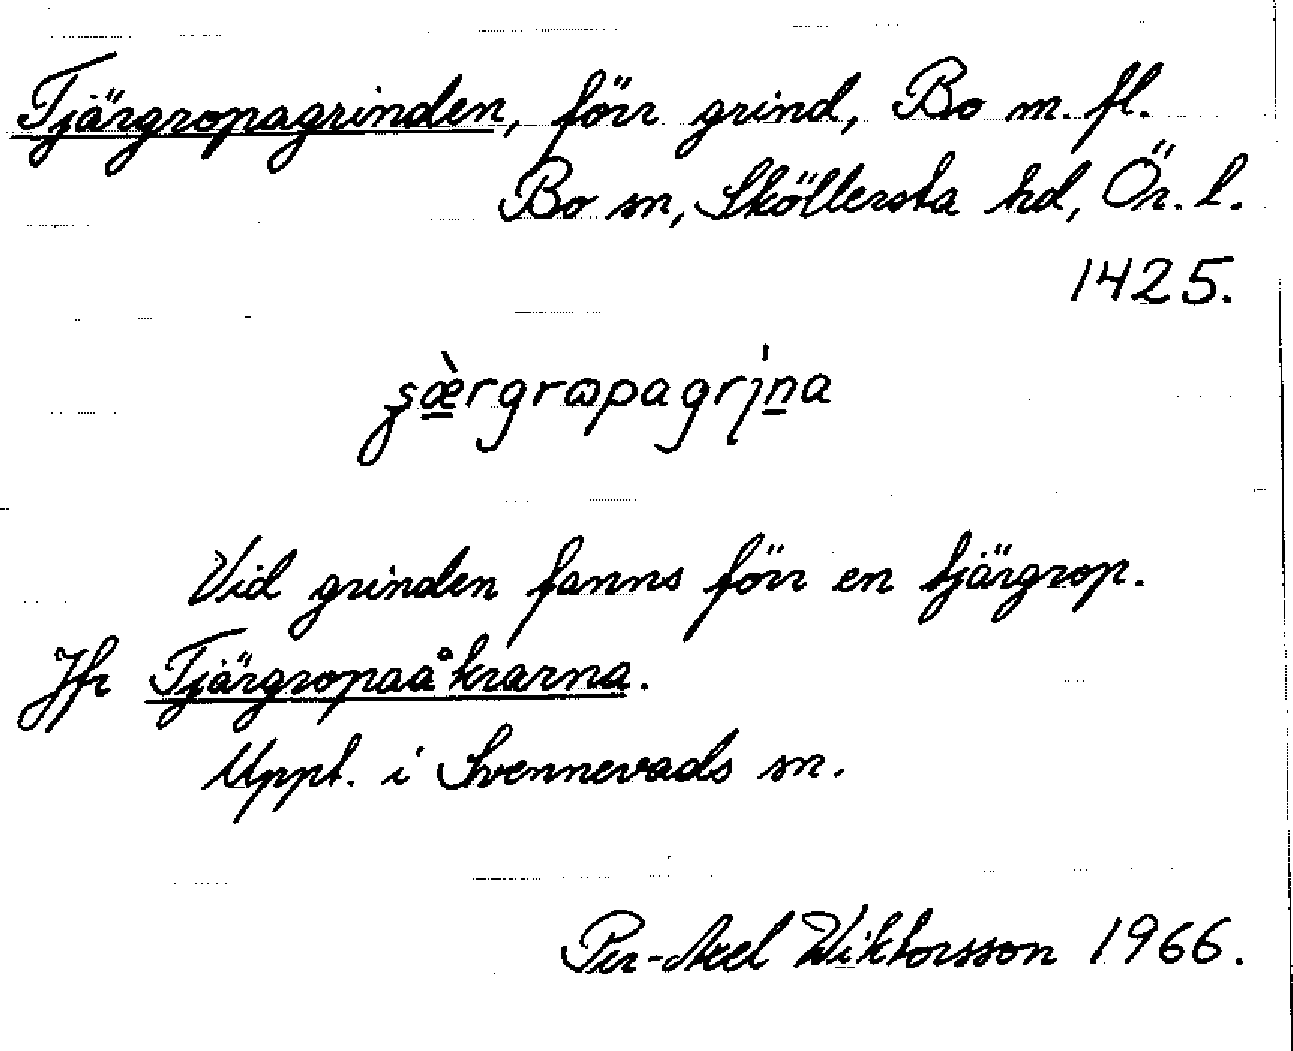 Tjärgropagrinden, förr grind, Bo m. fl.
Bo sn, Sköllersta hd, Ör. l.
1425.
Vid grinden fanns förr en tjärgrop.
Jfr Tjärgropaåkrarna.
Uppt. i Svennevads sn.
Per-Axel Wiktorsson 1966.